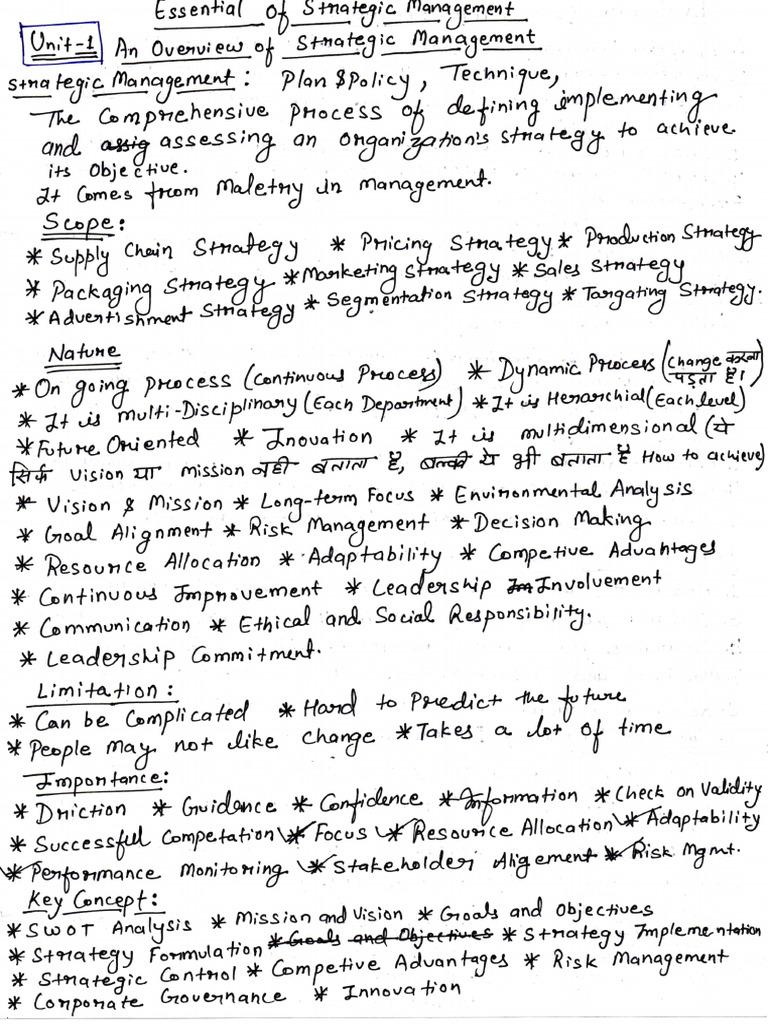 Essential of Strategic Management
Unit-1 An Overview of Strategic Management
Strategic Management: Plan & Policy, Technique,
The Comprehensive process of defining implementing
and assessing an organization's strategy to achieve
its Objective.
It Comes from Maletry in management.
Scope:
* Supply Chain Strategy * Pricing Strategy * Production Strategy
* Packaging Strategy * Marketing Strategy * Sales Strategy
* Advertishment Strategy * Segmentation Strategy * Targating Strategy.
Nature
* On going process (Continuous Process) * Dynamic Process (Change करना पड़ता है।)
* It is multi-Disciplinary (Each Department) * It is Herarchial (Each level)
* Future Oriented * Inovation * It is multidimensional (ये
सिर्फ vision या mission नही बताता है, बल्की ये भी बताता है How to achieve)
* Vision & Mission * Long-term Focus * Environmental Analysis
* Goal Alignment * Risk Management * Decision Making
* Resource Allocation * Adaptability * Competive Advantages
* Continuous Improvement * Leadership Involvement
* Communication * Ethical and Social Responsibility.
* Leadership Commitment.
Limitation:
* Can be Complicated * Hard to Predict the future
* People May not like change * Takes a lot of time
Importance:
* Driction * Guidence * Confidence * Information * Check on Validity
* Successful Competation * Focus * Resource Allocation * Adaptability
* Performance Monitoring * Stakeholder Aligement * Risk Mgmt.
Key Concept:
* SWOT Analysis * Mission and Vision * Goals and Objectives
* Strategy Formulation * Goals and Objectives * Strategy Implementation
* Strategic Control * Competive Advantages * Risk Management
* Corporate Governance * Innovation